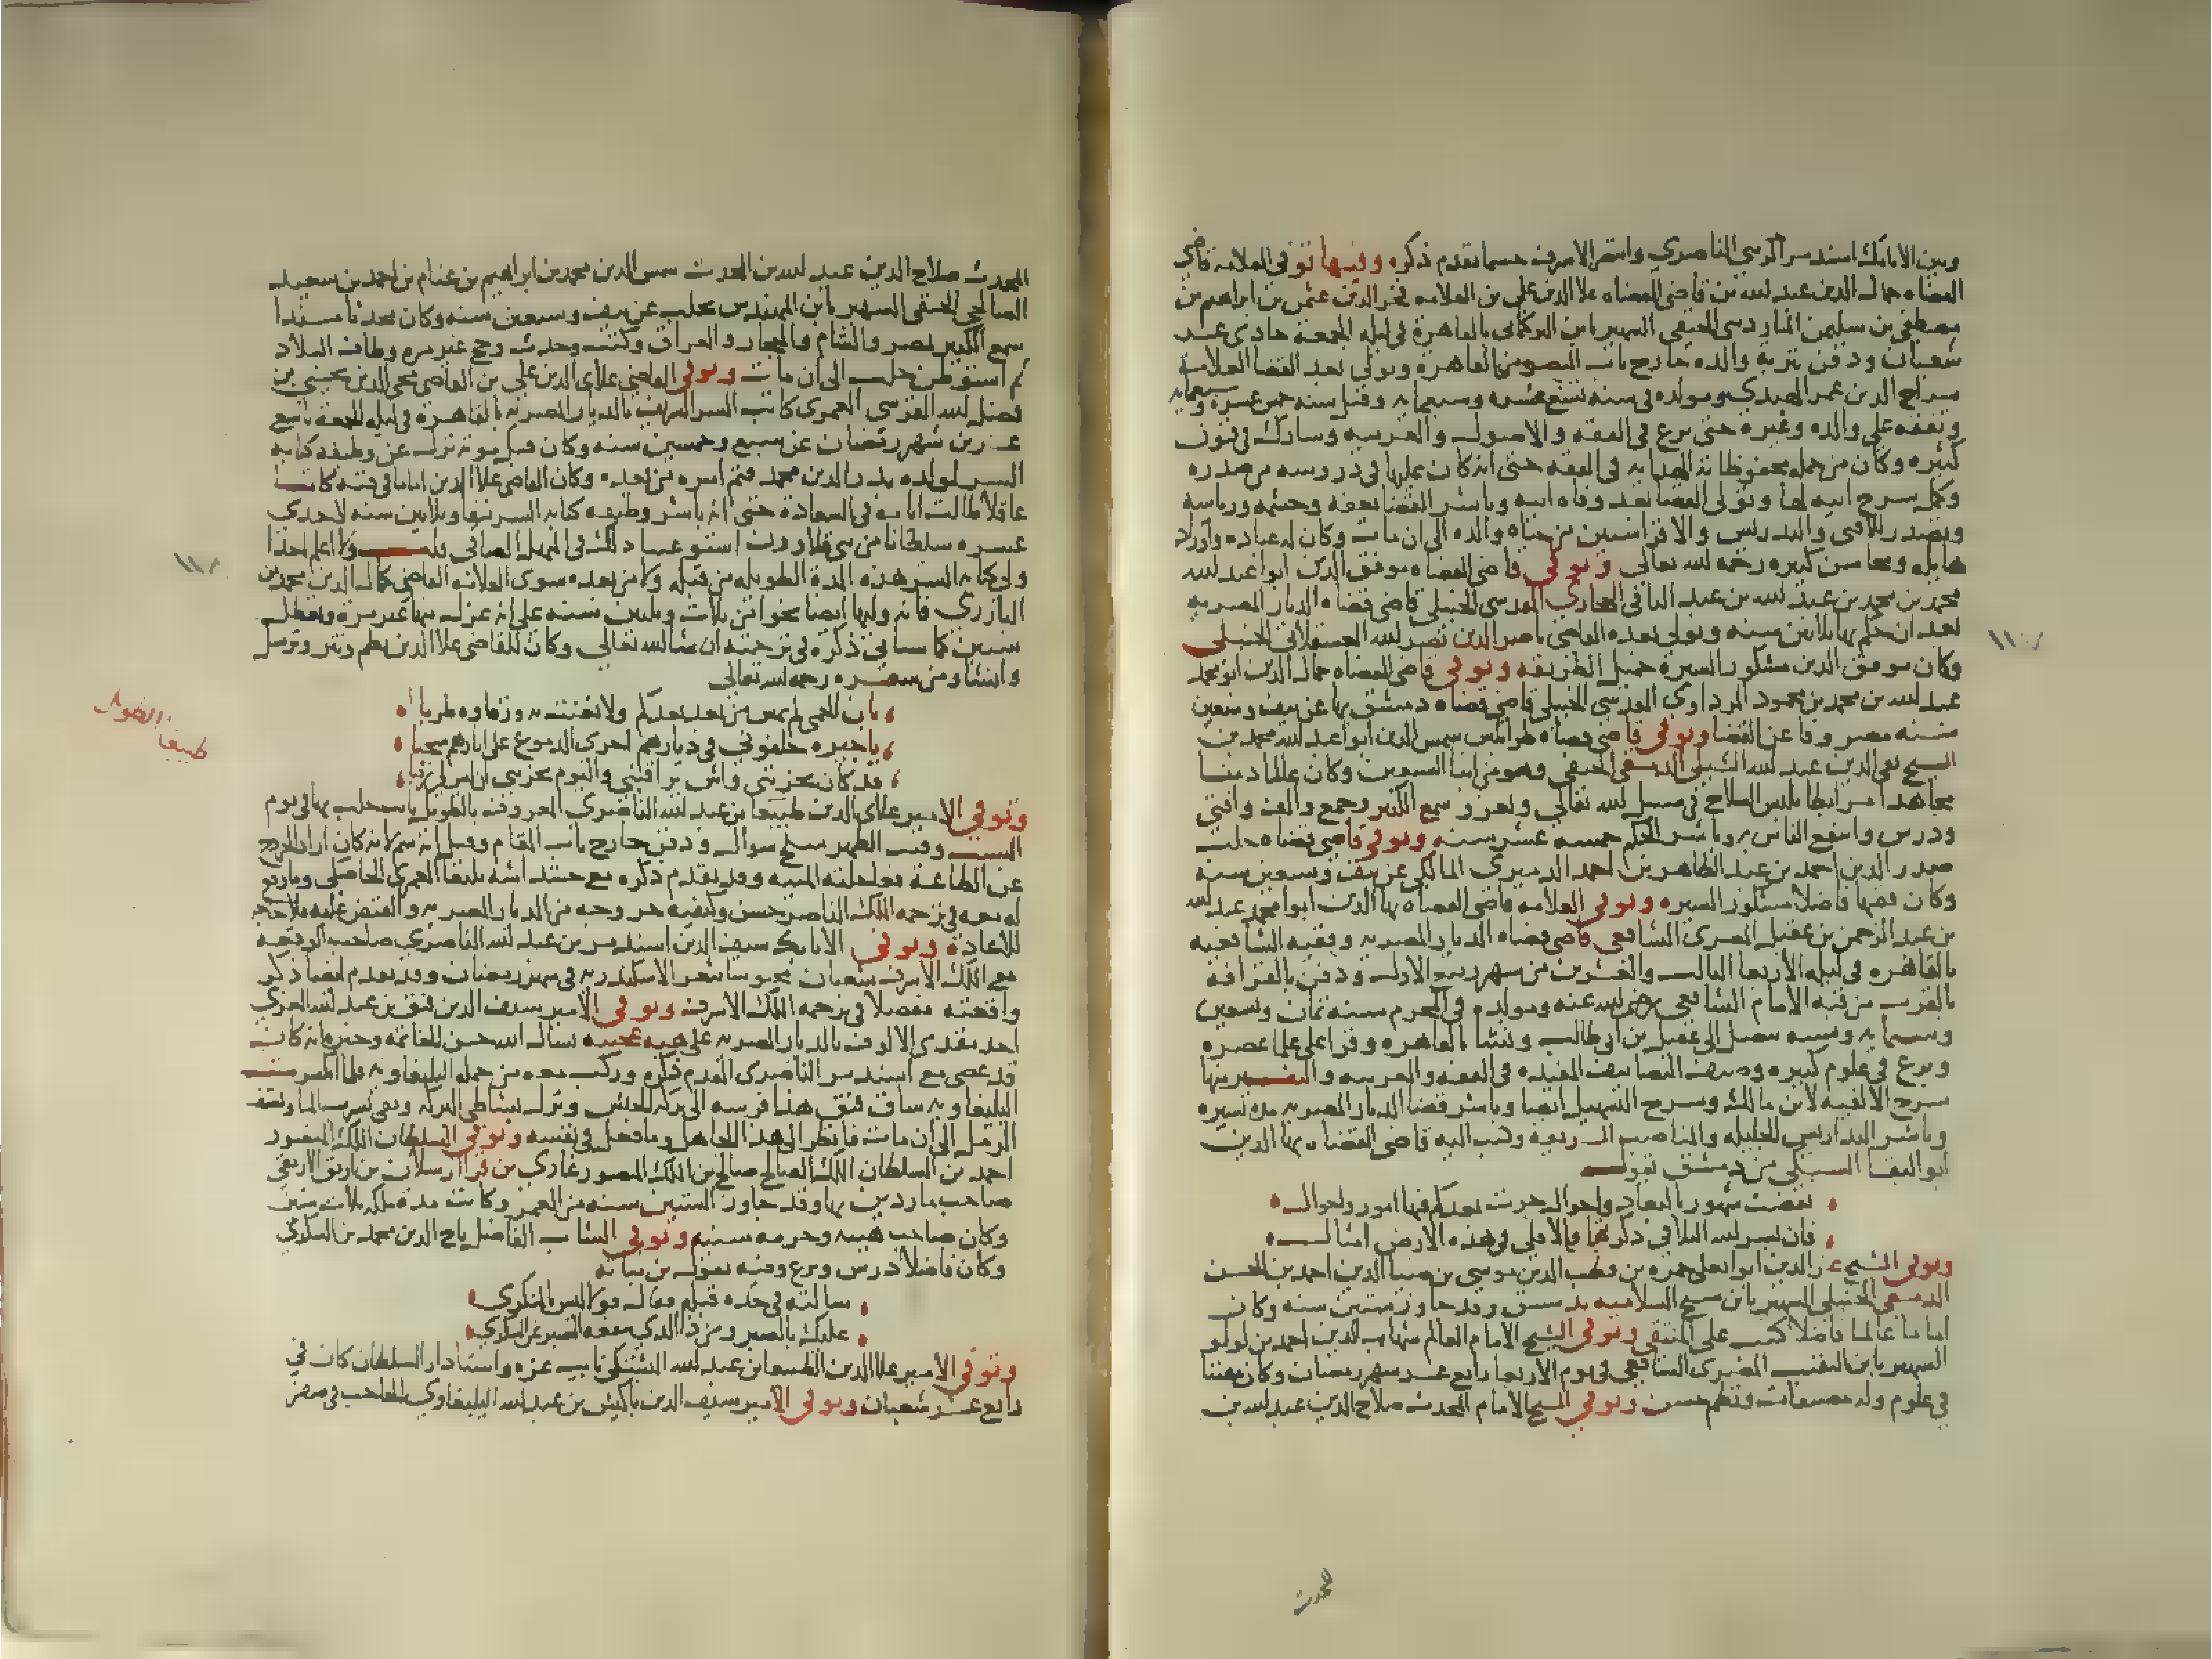 وبين الاتابك اسندمر الناصري وانتصر الاشرف حسبما تقدم ذكره وفيها توفي العلامة قاضي
القضاه جمال الدين عبد الله بن قاضي القضاه علا الدين علي بن العلامه فخر الدين عثمن بن ابراهيم بن
مصطفى بن سليمن المارديني الحنفي الشهير بابن التركماني بالقاهرة في ليله الجمعة حادي عشر
شعبان ودفن بتربة والده خارج باب النصر من القاهرة وتولى بعد القضا العلامة
سراج الدين عمر الهندي ومولده في سنه تسع عشره وسبعمايه وقيل سنه خمس عشره وسبعمايه
وتفقه على والده وغيره حتى برع في الفقه والاصول والعربيه وشارك في فنون
كثيره وكان من جمله محفوظاته الهدايه في الفقه حتى انه كان يمليها في دروسه من صدره
وكمل شرح ابيه لها وتولى القضا بعد وفاه ابيه وباشر القضا بعفه وحشمه ورياسه
وتصدر للافتى والتدريس والاقرا سنين من حياه والده الى ان مات وكان له عباده واوراد
هايله ومحاسن كثيره رحمه الله تعالى وتوفي قاضي القضاه موفق الدين ابوا عبد الله
محمد بن محمد بن عبد الله بن عبد الباقي الحجازي المقدسي الحنبلي قاضي قضاه الديار المصريه
بعد ان حكم بها ثلاثين سنه وتولى بعده القاضي ناصر الدين نصر الله العسقلاني الحنبلي
وكان موفق الدين مشكور السيرة جميل الطريقه وتوفي قاضي القضاه جمال الدين ابو محمد
عبد الله بن محمد بن محمود المرداوي المقدسي الحنبلي قاضي قضاه دمشق بها عن نيف وسبعين
سنه مصروفا عن القضا وتوفي قاضي قضاه طرابلس شمس الدين ابوا عبد الله محمد بن
الشيخ تقي الدين عبد الله الشبلي الدمشقي الحنفي وهو من ابنا السبعين وكان عالما دينا
مجاهدا مرابطا يلبس السلاح في سبيل الله تعالى ويغزوا سمع الكثير وجمع والف وافتى
ودرس وانتفع الناس به وباشر الحكم خمسه عشر سنه وتوفي قاضي قضاه حلب
صدر الدين احمد بن عبد الظاهر بن احمد الدميري المالكي عن نيف وسبعين سنه
وكان فقيها فاضلا مشكور السيره وتوفي العلامه قاضي القضاه بها الدين ابوا محمد عبد الله
بن عبد الرحمن بن عقيل المصري الشافعي قاضي قضاه الديار المصريه وفقيه الشافعيه
بالقاهره في ليله الاربعا الثالث والعشرين من شهر ربيع الاول ودفن بالقرافة
بالقرب من قبه الامام الشافعي رضي الله عنه ومولده في المحرم سنه ثمان وتسعين
وستمايه ونسبه يتصل الى عقيل بن ابي طالب ونشا بالقاهره وقرا على علما عصره
وبرع في علوم كثيره وصنف التصانيف المفيده في الفقه والعربيه والتفسير منها
شرح الالفيه لابن مالك وشرح التسهيل ايضا وباشر قضا الديار المصريه مده يسيره
وباشر التداريس الجليله والمناصب الشريفه وكتب اليه قاضي القضاه بها الدين
ابو البقا السبكي من دمشق يقول
تقضت شهور بالبعاد واحوال جرت بعدكم فيها امور واحوال
فان يسر الله التلاقي ذكرتها والا فلي في هذه الارض امثال
وتوفي الشيخ عز الدين ابو يعلى حمزه بن قطب الدين موسى بن ضيا الدين احمد بن الحسين
الدمشقي الحنبلي الشهير بابن شيخ السلاميه بدمشق وقد جاوز ستين سنه وكان
اماما عالما فاضلا كتب على المنتقى وتوفي الشيخ الامام العالم شهاب الدين احمد بن لولو
الشهير بابن النقيب المصري الشافعي في يوم الاربعا رابع عشر شهر رمضان وكان مفتنا
في علوم وله مصنفات ونظم حسن وتوفي الشيخ الامام المحدث صلاح الدين عبد الله بن
المحدث
المحدث صلاح الدين عبد الله بن المحدث شمس الدين محمد بن ابراهيم بن غنام بن احمد بن سعيد
الصالحي الحنفي الشهير بابن المهندس بحلب عن نيف وسبعين سنه وكان محدثا مسندا
سمع الكثير بمصر والشام والحجاز والعراق وكتب وحدث وحج غير مره وطاف البلاد
ثم استوطن حلب الى ان مات وتوفي القاضي علاي الدين علي بن القاضي محي الدين يحيى بن
فضل الله القرشي العمري كاتب السر الشريف بالديار المصريه بالقاهرة في ليله الجمعة تاسع
عشرين شهر رمضان عن سبع وخمسين سنه وكان قبل موته نزل عن وظيفه كتابه
السر لولده بدر الدين محمد فتم امره من بعده وكان القاضي علا الدين اماما في فنه كاتبا
عاقلا طالت ايامه في السعادة حتى انه باشر وظيفه كتابه السر نيفا وثلاثين سنه لاحدى
عشره سلطانا من بني قلاوون استوعبنا ذلك في المنهل الصافي قلت ولا اعلم احدا
ولي كتابه السر هذه المدة الطويله من قبله ولا من بعده سوى العلامه القاضي كمال الدين محمد بن
البارزي فانه وليها ايضا نحوا من ثلاث وثلثين سنه على انه عزل منها غير مرة وتعطل
سنين كما سياتي ذكره في ترجمته ان شا الله تعالى وكان للقاضي علا الدين نظم ونثر وترسل
وانشا ومن شعره رحمه الله تعالى
بان الحمى لم يمس من بعد بعدكم ولا تغنت به ورقاوه طربا
يا جيره خلفوني في ديارهم اجرى الدموع على اثارهم سحبا
قد كان يحزنني واش يراقبني واليوم يحزنني ان ليس لي رقبا
وتوفي الامير علاي الدين طيبغا بن عبد الله الناصري المعروف بالطويل نايب حلب بها في يوم
السبت وقت الظهر سلخ شوال ودفن خارج باب المقام وقيل انه سم لانه كان اراد الخروج
عن الطاعة فعاجلته المنيه وقد تقدم ذكره مع خشداشه يلبغا العمري الخاصكي وما وقع
له معه في ترجمه الملك الناصر حسن وكيفيه خروجه من الديار المصريه والقبض عليه فلا حاجه
للاعادة وتوفي الاتابك سيف الدين اسندمر بن عبد الله الناصري صاحب الوقعه
مع الملك الاشرف شعبان محبوسا بثغر الاسكندريه في شهر رمضان وقد تقدم ايضا ذكر
واقعته مفصلا في ترجمه الملك الاشرف وتوفي الامير سيف الدين قنق بن عبد الله العزي
احد مقدمي الالوف بالديار المصريه على هيه عجيبه نسال الله حسن الخاتمه وخبره انه كان
قد عصى مع اسندمر الناصري المقدم ذكره وركب معه من جمله اليلبغاويه فلما انكسرت
اليلبغاويه ساق قنق هذا فرسه الى بركه الحبش ونزل بشاطى البركه وبقى يشرب الما ويستف
الرمل الى ان مات فانظر الى هذا الجاهل وما فعل في نفسه وتوفي السلطان الملك المنصور
احمد بن السلطان الملك الصالح صالح بن الملك المنصور غازي بن قرا ارسلان بن ارتق الارتقي
صاحب ماردين بها وقد جاوز الستين سنه من العمر وكانت مدة ملكه ثلاث سنين
وكان صاحب هيبه وحرمه سنيه وتوفي الشاب الفاضل تاج الدين محمد بن السكري
وكان فاضلا درس وبرع وفيه يقول بن نباته
سالته في خده قبله فقال قولا ليس بالمنكري
عليك بالصبر ومن ذا الذي ينفعه الصبر عن السكري
وتوفي الامير علا الدين الطنبغا بن عبد الله البشتكي نايب غزه واستادار السلطان كان في
رابع عشر شعبان وتوفي الامير سيف الدين باكيش بن عبد الله اليلبغاوي الحاجب في صفر
طيبغا الطويل